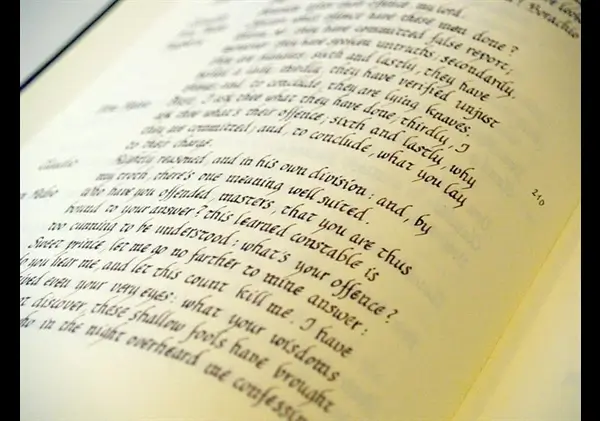 after their offence, my lord.
offence have these men done?
they have committed false report;
they have spoken untruths; secondarily,
they are slanders; sixth and lastly, they have
belied a lady; thirdly, they have verified unjust
things; and, to conclude, they are lying knaves.
Don Pedro First, I ask thee what they have done; thirdly, I
ask thee what's their offence; sixth and lastly, why
they are committed; and, to conclude, what you lay
to their charge.
Claudio Rightly reasoned, and in his own division; and, by
my troth, there's one meaning well suited.
Pedro Who have you offended, masters, that you are thus
bound to your answer? this learned constable is
too cunning to be understood: what's your offence?
Sweet prince, let me go no farther to mine answer:
you hear me, and let this count kill me. I have
even your very eyes: what your wisdoms
discover, these shallow fools have brought
in the night overheard me
210
Borachio